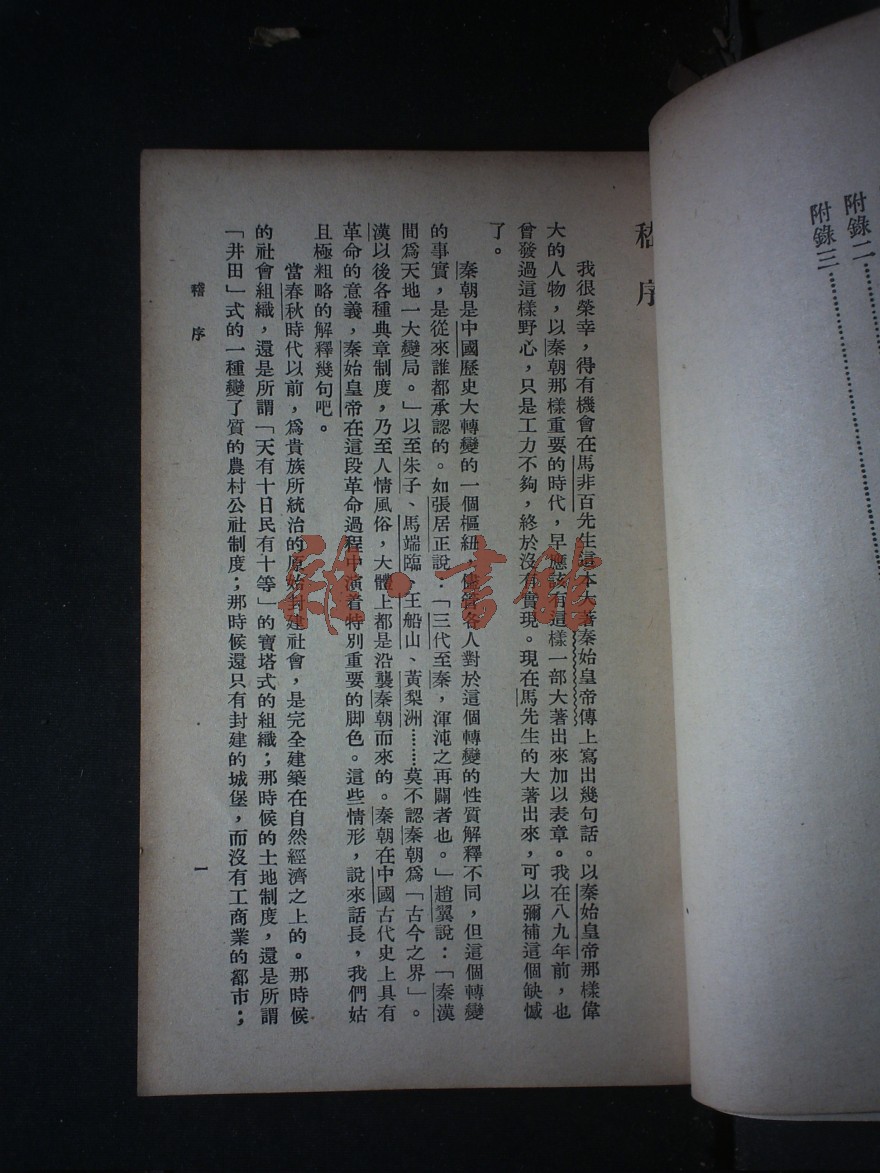 附錄二
附錄三
嵇序
我很榮幸，得有機會在馬非百先生這本大著秦始皇帝傳上寫出幾句話。以秦始皇帝那樣偉
大的人物，以秦朝那樣重要的時代，早應該有這樣一部大著出來加以表章。我在八九年前，也
曾發過這樣野心，只是工力不夠，終於沒有實現。現在馬先生的大著出來，可以彌補這個缺憾
了。
秦朝是中國歷史大轉變的一個樞紐，儘管各人對於這個轉變的性質解釋不同，但這個轉變
的事實，是從來誰都承認的。如張居正說：「三代至秦，渾沌之再闢者也。」趙翼說：「秦漢
間爲天地一大變局。」以至朱子、馬端臨、王船山、黃梨洲……莫不認秦朝爲「古今之界」。
漢以後各種典章制度，乃至人情風俗，大體上都是沿襲秦朝而來的。秦朝在中國古代史上具有
革命的意義，秦始皇帝在這段革命過程中演着特別重要的脚色。這些情形，說來話長，我們姑
且極粗略的解釋幾句吧。
當春秋時代以前，爲貴族所統治的原始封建社會，是完全建築在自然經濟之上的。那時候
的社會組織，還是所謂「天有十日民有十等」的寶塔式的組織；那時候的土地制度，還是所謂
「井田」式的一種變了質的農村公社制度；那時候還只有封建的城堡，而沒有工商業的都市；
嵇序
一
雜·書館